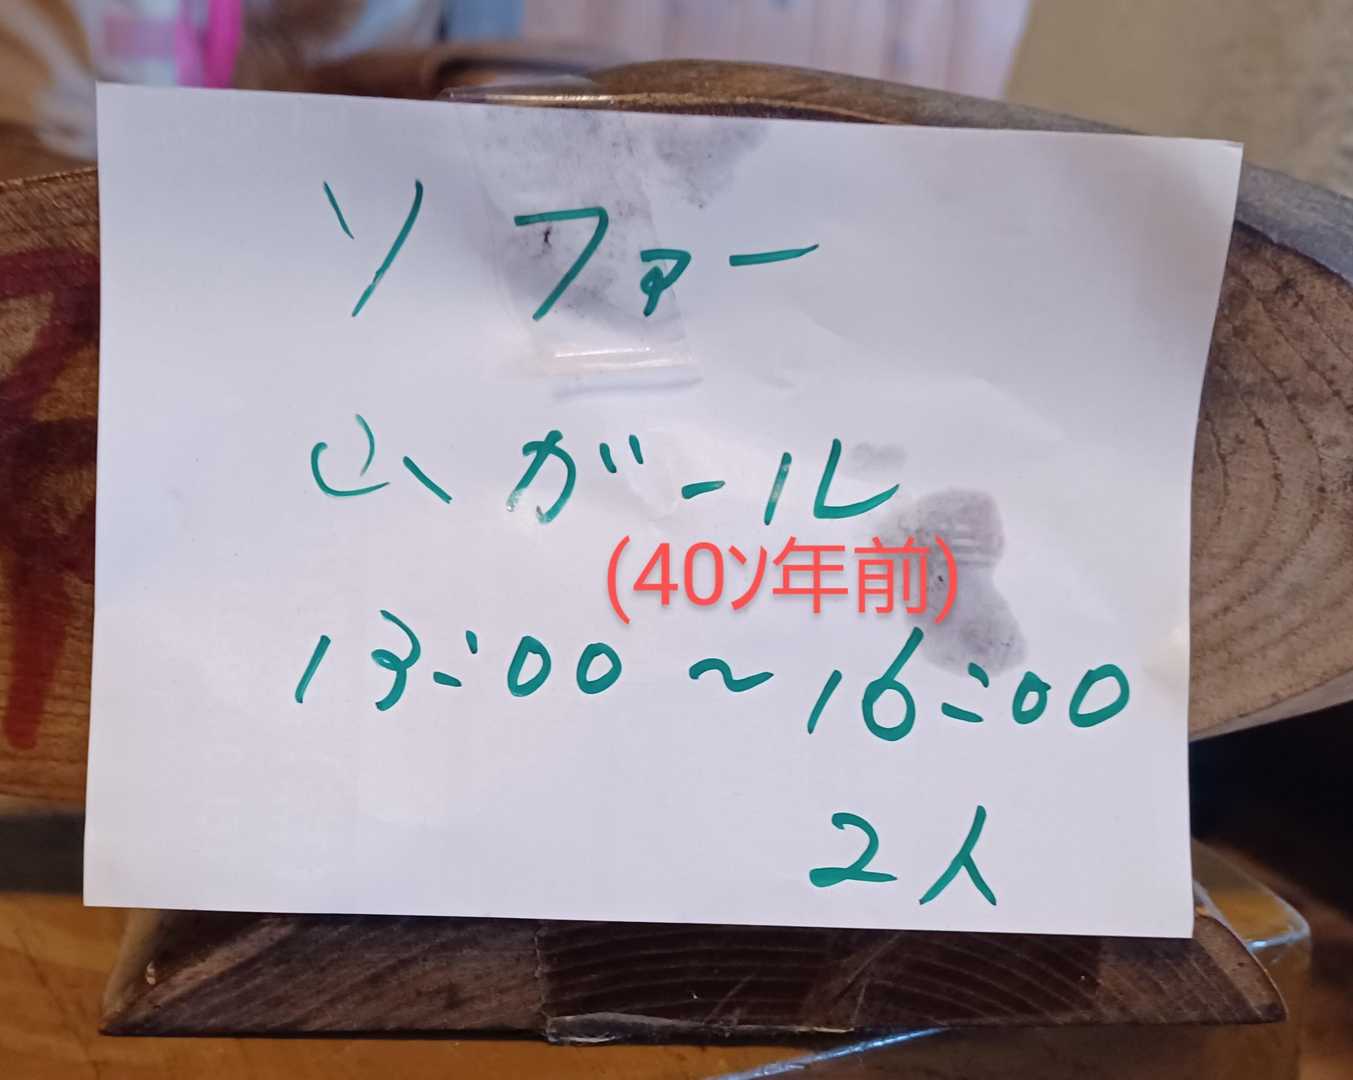 ソファー
山ガール
(40ｿ年前)
13:00～16:00
2人